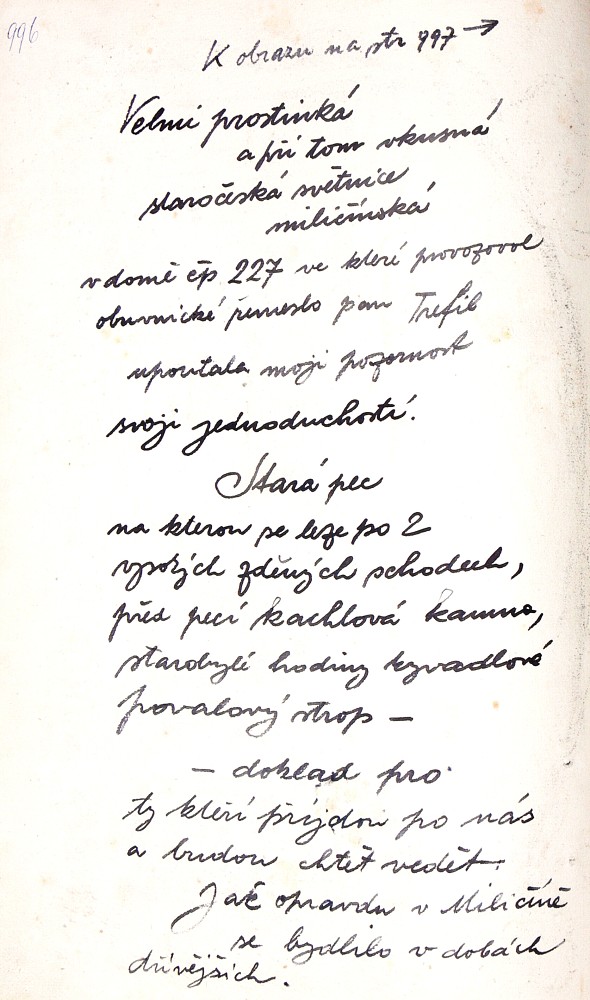 996
K obrazu na str 997 →
Velmi prostinká
a při tom vkusná
staročeská světnice
miličínská
v domě čp 227 ve které provozoval
obuvnické řemeslo pan Trefil
upoutala moji pozornost
svoji jednoduchostí.
Stará pec
na kterou se leze po 2
vysokých zděných schodech,
před pecí kachlová kamna,
starobylé hodiny kyvadlové
povalový strop —
— doklad pro
ty kteří příjdou po nás
a budou chtět vedět.
Jak opravdu v Miličíně
se bydlilo v dobách
dřívějších.